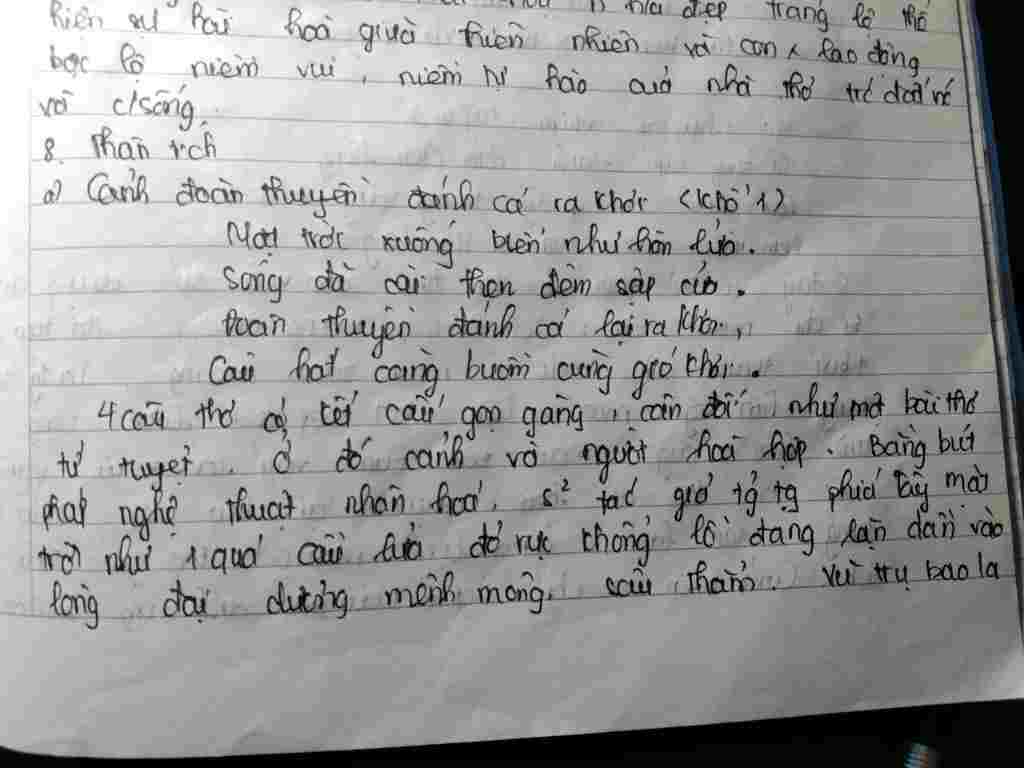 đẹp tráng lệ thể
hiện sự hài hoà giữa thiên nhiên và con x lao động
bộc lộ niềm vui, niềm tự hào của nhà thơ trc đất nc
và c/sống.
8. Phân tích
a) Cảnh đoàn thuyền đánh cá ra khơi (khổ 1)
Mặt trời xuống biển như hòn lửa.
Sóng đã cài then đêm sập cửa.
Đoàn thuyền đánh cá lại ra khơi,
Câu hát căng buồm cùng gió khơi.
4 câu thơ có kết cấu gọn gàng, cân đối như một bài thơ
tứ tuyệt. ở đó cảnh và người hoà hợp. Bằng bút
pháp nghệ thuật nhân hoá, s² tác giả tg tg phía tây mặt
trời như 1 quả cầu lửa đỏ rực khổng lồ đang lặn dần vào
lòng đại dương mênh mông, sâu thẳm. Vũ trụ bao la